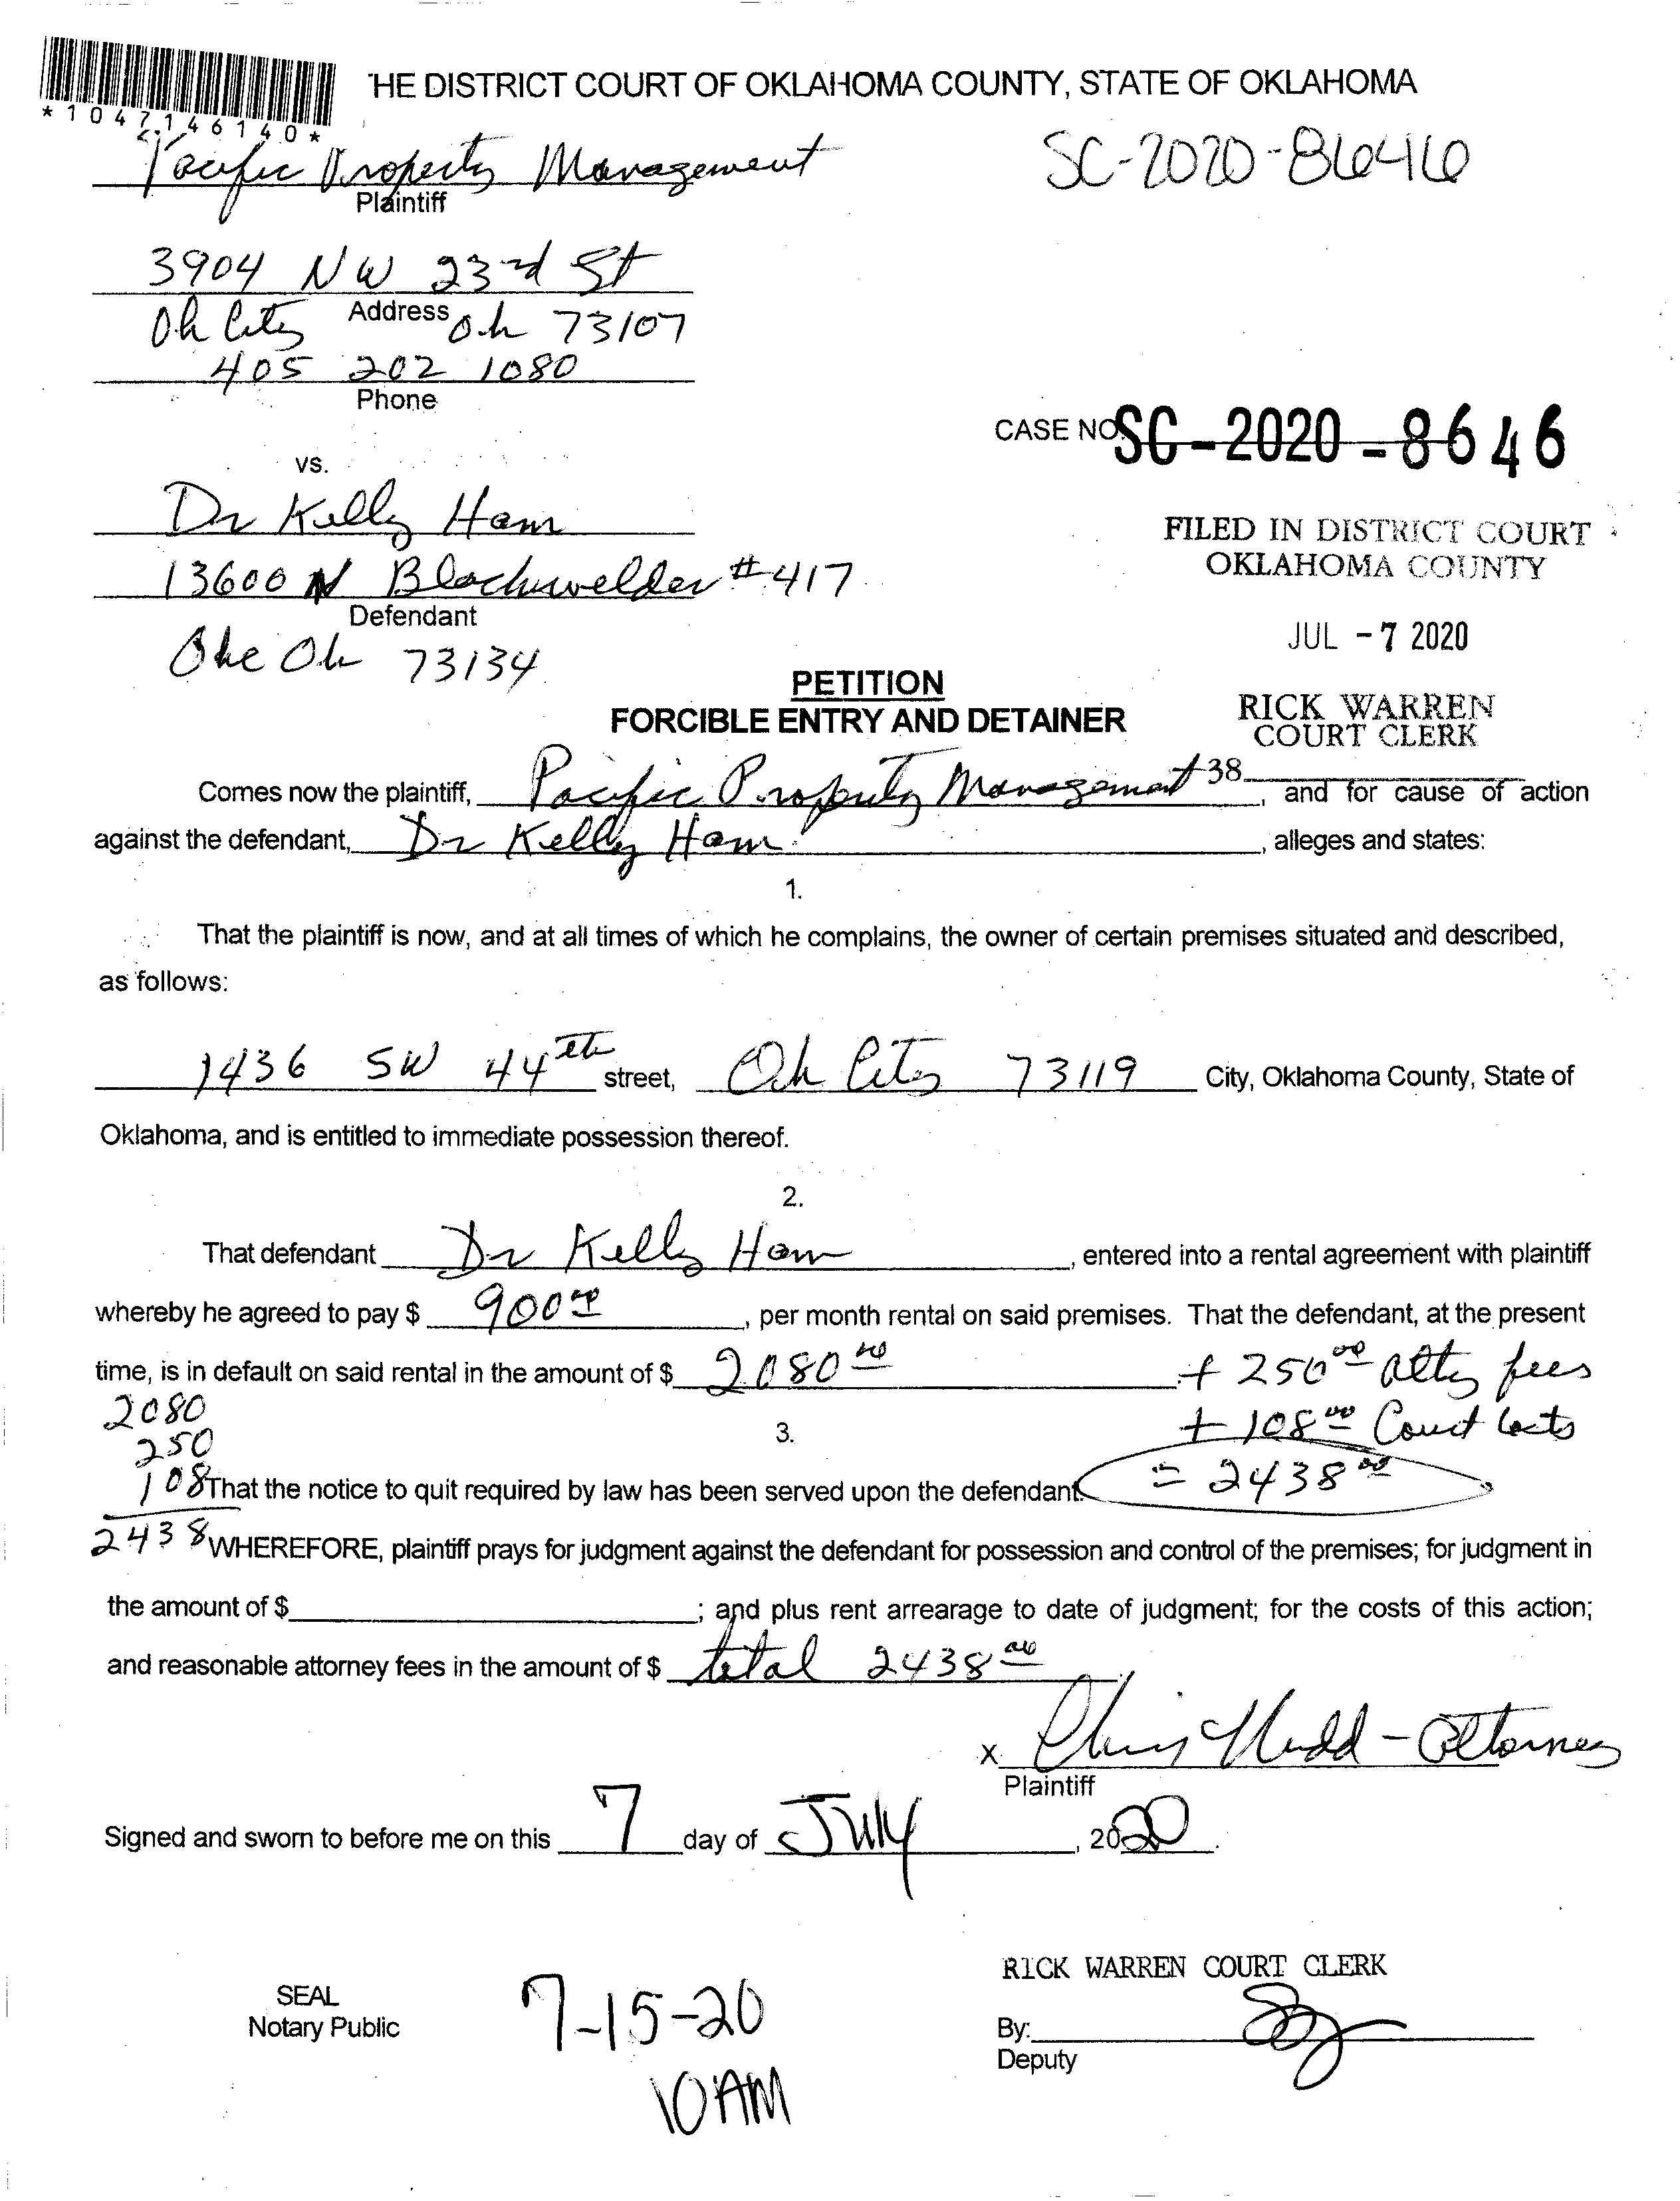 THE DISTRICT COURT OF OKLAHOMA COUNTY, STATE OF OKLAHOMA
*1047146140*
Pacific Property Management
SC-2020-8646
Plaintiff
3904 NW 23rd St
Address
Ok City Ok 73107
405 202 1080
Phone
CASE NO SC-2020-8646
vs.
Dr Kelly Ham
FILED IN DISTRICT COURT
13600 N Blackwelder #417
OKLAHOMA COUNTY
Defendant
JUL -7 2020
Okc Ok 73134
PETITION
RICK WARREN
FORCIBLE ENTRY AND DETAINER
COURT CLERK
38
Comes now the plaintiff, Pacific Property Management, and for cause of action
against the defendant, Dr Kelly Ham, alleges and states:
1.
That the plaintiff is now, and at all times of which he complains, the owner of certain premises situated and described,
as follows:
1436 SW 44th street, Ok City 73119 City, Oklahoma County, State of
Oklahoma, and is entitled to immediate possession thereof.
2.
That defendant Dr Kelly Ham, entered into a rental agreement with plaintiff
whereby he agreed to pay $ 900 00, per month rental on said premises. That the defendant, at the present
time, is in default on said rental in the amount of $ 2080 00 + 250 00 atty fees
2080
+ 108 00 Court Costs
250
3.
108 That the notice to quit required by law has been served upon the defendant. = 2438 00
2438 WHEREFORE, plaintiff prays for judgment against the defendant for possession and control of the premises; for judgment in
the amount of $ ; and plus rent arrearage to date of judgment; for the costs of this action;
and reasonable attorney fees in the amount of $ total 2438 00
x - Attorney
Plaintiff
Signed and sworn to before me on this 7 day of July, 2020.
RICK WARREN COURT CLERK
SEAL
Notary Public
7-15-20
By:
Deputy
10 AM